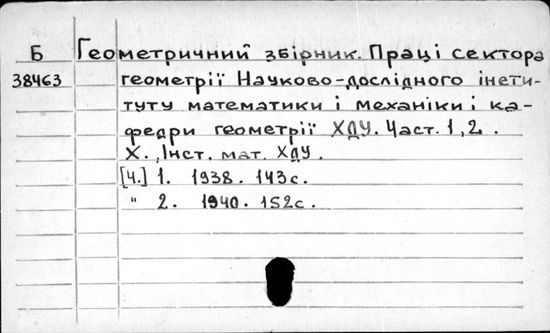 Б Геометричний збірник. Праці сектора
38463 геометрії Науково-дослідного інсти-
туту математики і механіки і ка-
федри геометрії ХДУ. Част. 1, 2.
Х., Інст. мат. ХДУ.
[Ч.] 1. 1938. 143 с.
" 2. 1940. 152 с.